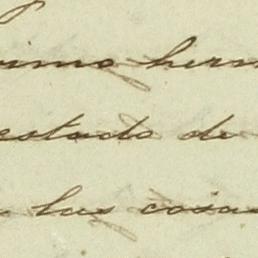 rimo herm
estado de
las cosas